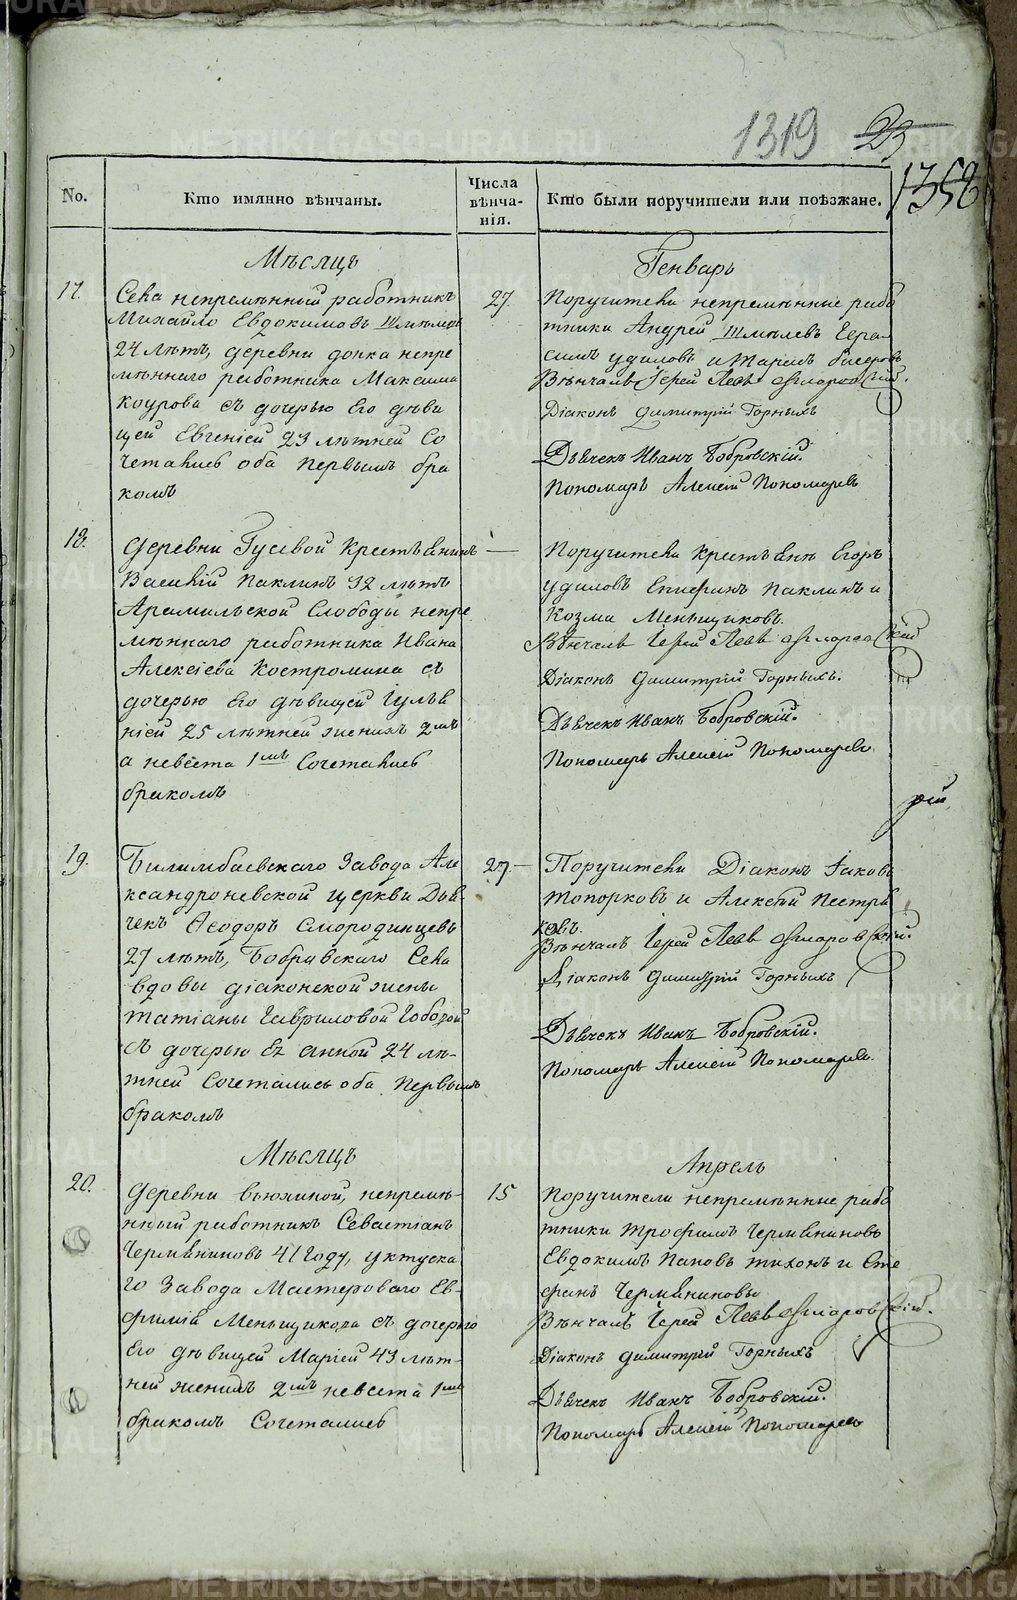 1319 23
1358
No.
Кто имянно вѣнчаны.
Числа вѣнча- нія.
Кто были поручители или поѣзжане.
Мѣсяцъ
Генварь
17.
Села непремѣнный работникъ
Михайло Евдокимовъ Шмелевъ
24 лѣтъ, деревни непре
мѣннаго работника Максима
Коурова съ дочерью Его дѣви
цей Евгеніей 23 лѣтней Со
четались оба первымъ бра
комъ
27.
Поручители непремѣнные рабо
тники Андрей Шмѣлевъ Гера
симъ удиловъ и
Вѣнчалъ Іерей Левъ
Діаконъ Димитрій Горныхъ
Дьячекъ Иванъ Бобровскій.
Пономарь Алексій Пономаревъ
18.
Деревни Гусевой Крестьянинъ
Василій Паклинъ 32 лѣтъ
Арамильской Слободы непре
мѣннаго работника Ивана
Алексіева Костромина съ
дочерью Его дѣвицей Іулья
ніей 25 лѣтней женихъ 2мъ
а невѣста 1мъ Сочетались
бракомъ
—
Поручители крестьяне Егоръ
удиловъ Епифанъ Паклинъ и
Козма Меньщиковъ.
Вѣнчалъ Іерей Левъ
Діаконъ Димитрій Горныхъ.
Дьячекъ Иванъ Бобровскій.
Пономарь Алексій Пономаревъ
рій
19.
Билимбаевскаго Завода Але
ксандроневской церкви Дья-
чекъ Ѳеодоръ Смородинцевъ
27 лѣтъ, Бобравскаго Села
вдовы діаконской жены
татіаны Гавриловой
съ дочерью Ея Анной 24 лѣ-
тней Сочетались оба Первымъ
бракомъ
27. —
Поручители Діаконъ Іаковъ
топорковъ и Алексѣй Пестря
ковъ.
Вѣнчалъ Іерей Левъ
Діаконъ Димитрій Горныхъ
Дьячекъ Иванъ Бобровскій.
Пономарь Алексій Пономаревъ.
Мѣсяцъ
Апрель
20.
Деревни вьюхиной, непремѣ-
нный работникъ Севастіанъ
Чермяниновъ 41 году, уктуска
го Завода Мастероваго Ев-
фимія Меньщикова съ дочерью
Его дѣвицей Маріей 43 лѣт-
ней женихъ 2мъ невѣста 1мъ
бракомъ Сочетались
15
Поручители непремѣнные рабо
тники трофимъ Чермяниновъ
Евдокимъ Паповъ тихонъ и Сте
фанъ Чермяниновы
Вѣнчалъ Іерей Левъ
Діаконъ Димитрій Горныхъ
Дьячекъ Иванъ Бобровскій.
Пономарь Алексій Пономаревъ
METRIKI.GASO-URAL.RU